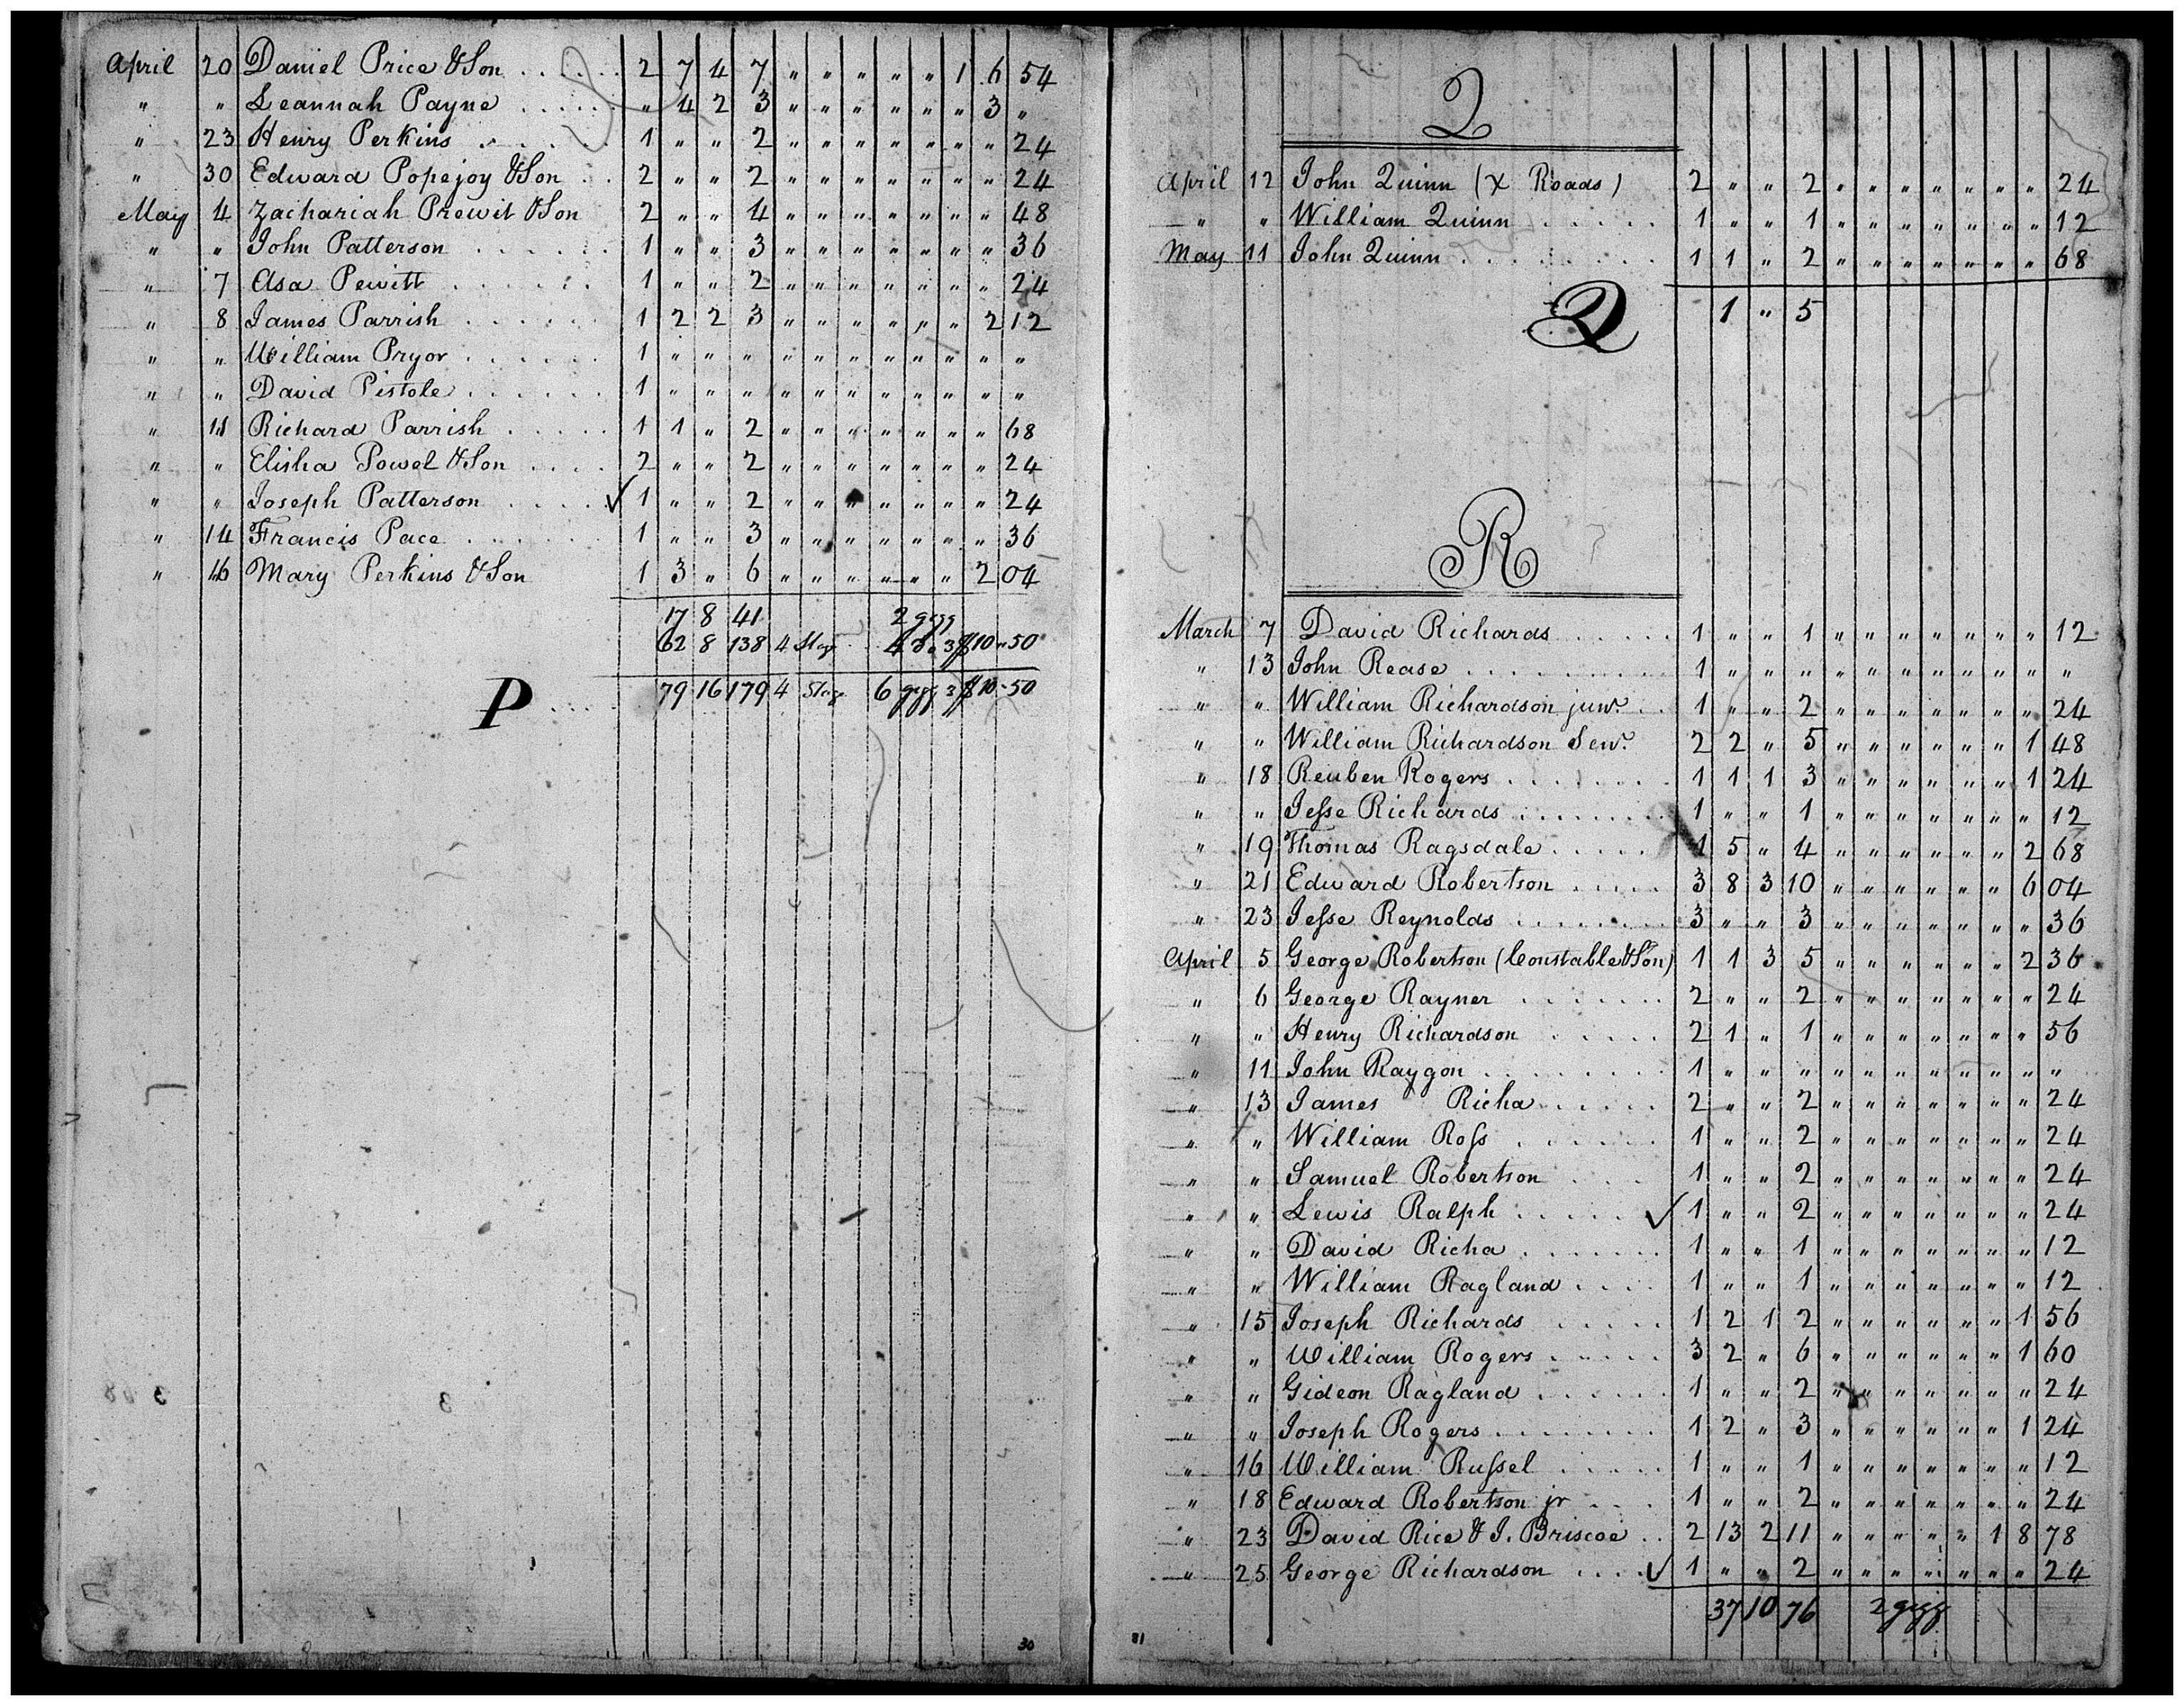 April 20 Daniel Price & Son . . . . . . 2 7 4 7 " " " " " 1 6 54
" " Leannah Payne . . . . . . " 4 2 3 " " " " " " 3 "
" 23 Henry Perkins . . . . . 1 " " 2 " " " " " " " 24
" 30 Edward Popejoy & Son . . 2 " " 2 " " " " " " " 24
May 4 Zachariah Prewit & Son 2 " " 4 " " " " " " " 48
" " John Patterson . . . . . . 1 " " 3 " " " " " " " 36
" 7 Asa Pewitt . . . . . . 1 " " 2 " " " " " " " 24
" 8 James Parrish . . . . . . 1 2 2 3 " " " " " " 2 12
" " William Pryor . . . . . . 1 " " " " " " " " " " "
" " David Pistole . . . . . . 1 " " " " " " " " " " "
" 11 Richard Parrish . . . . . 1 1 " 2 " " " " " " " 68
" " Elisha Powel & Son . . . . 2 " " 2 " " " " " " " 24
" " Joseph Patterson . . . . . ✓ 1 " " 2 " " " " " " " 24
" 14 Francis Pace . . . . . . 1 " " 3 " " " " " " " 36
" 16 Mary Perkins & Son 1 3 " 6 " " " " " " 2 04
17 8 41 2 gigg
62 8 138 4 Stag 4 do 3 $10 " 50
P . . . . 79 16 179 4 Stag 6 gigg 3 $10 - 50
30
Q
April 12 John Quinn (X Roads) 2 " " 2 " " " " " " " 24
" " William Quinn . . . . . 1 " " 1 " " " " " " " 12
May 11 John Quinn . . . . . . . . 1 1 " 2 " " " " " " " 68
Q 1 " 5
R
March 7 David Richards . . . . . 1 " " 1 " " " " " " " 12
" 13 John Rease . . . . . . . . . 1 " " " " " " " " " " "
" " William Richardson junr. . . 1 " " 2 " " " " " " " 24
" " William Richardson Senr. 2 2 " 5 " " " " " " 1 48
" 18 Reuben Rogers . . . . . . . 1 1 1 3 " " " " " " 1 24
" " Jesse Richards . . . . . . . . 1 " " 1 " " " " " " " 12
" 19 Thomas Ragsdale . . . . . 1 5 " 4 " " " " " " 2 68
" 21 Edward Robertson . . . . . 3 8 3 10 " " " " " " 6 04
" 23 Jesse Reynolds . . . . . . . . 3 " " 3 " " " " " " " 36
April 5 George Robertson (Constable & Son) 1 1 3 5 " " " " " " 2 36
" 6 George Rayner . . . . . . . 2 " " 2 " " " " " " " 24
" " Henry Richardson . . . . . 2 1 " 1 " " " " " " " 56
" 11 John Raygon . . . . . . . . . 1 " " " " " " " " " " "
" 13 James Richa . . . . . 2 " " 2 " " " " " " " 24
" " William Ross . . . . . . 1 " " 2 " " " " " " " 24
" " Samuel Robertson . . . 1 " " 2 " " " " " " " 24
" " Lewis Ralph . . . . . ✓ 1 " " 2 " " " " " " " 24
" " David Richa . . . . . . . 1 " " 1 " " " " " " " 12
" " William Ragland . . . . 1 " " 1 " " " " " " " 12
" 15 Joseph Richards . . . . . 1 2 1 2 " " " " " " 1 56
" " William Rogers . . . . . 3 2 " 6 " " " " " " 1 60
" " Gideon Ragland . . . . . . 1 " " 2 " " " " " " " 24
" " Joseph Rogers . . . . . . . . 1 2 " 3 " " " " " " 1 24
" 16 William Russel . . . . . 1 " " 1 " " " " " " " 12
" 18 Edward Robertson jr . . . 1 " " 2 " " " " " " " 24
" 23 David Rice & J. Briscoe . . 2 13 2 11 " " " " " 1 8 78
" 25 George Richardson . . . . ✓ 1 " " 2 " " " " " " " 24
37 10 76 2 gigg
31